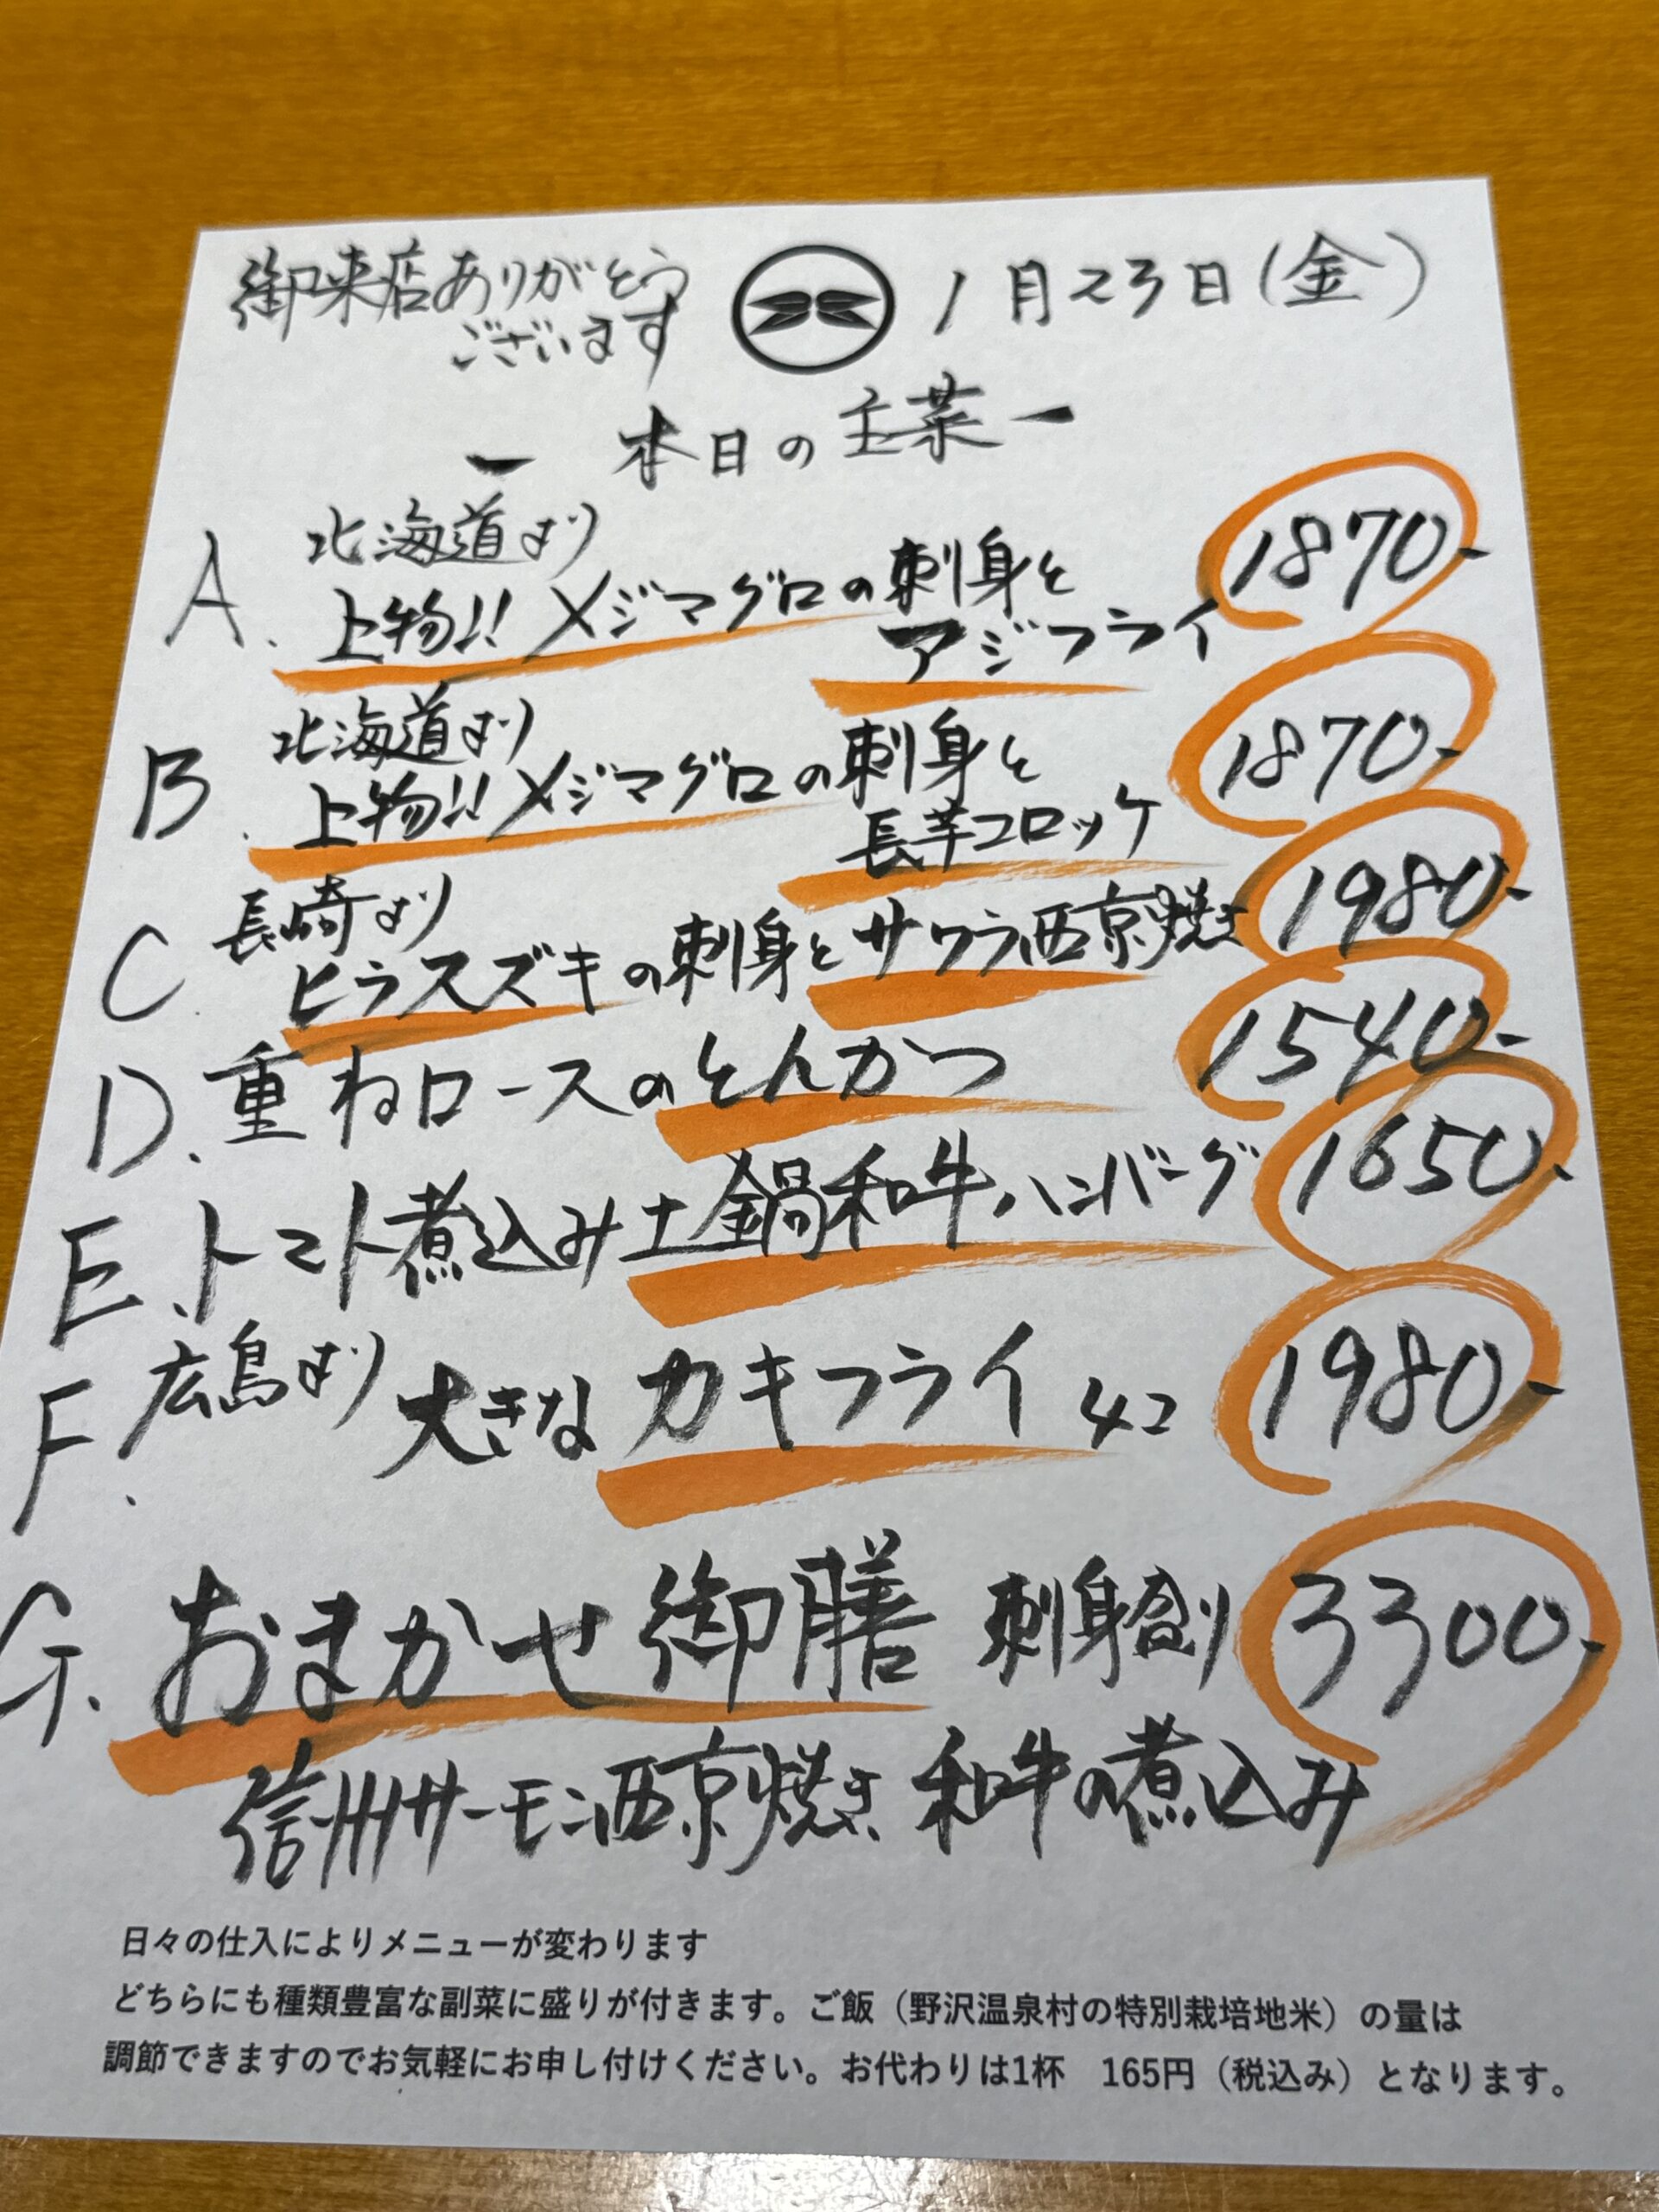 御来店ありがとう
ございます
1月23日(金)
ー 本日の主菜 ー
A. 北海道より
上物!! メジマグロの刺身と
アジフライ
1870-
B. 北海道より
上物!! メジマグロの刺身と
長芋コロッケ
1870-
C. 長崎より
ヒラスズキの刺身とサワラ西京焼き
1980-
D. 重ねロースのとんかつ
1540-
E. トマト煮込み土鍋和牛ハンバーグ
1650-
F. 広島より 大きなカキフライ 4コ
1980-
G. おまかせ御膳 刺身
3300-
信州サーモン西京焼き 和牛の煮込み
日々の仕入によりメニューが変わります
どちらにも種類豊富な副菜に盛りが付きます。ご飯（野沢温泉村の特別栽培地米）の量は
調節できますのでお気軽にお申し付けください。お代わりは1杯　165円（税込み）となります。